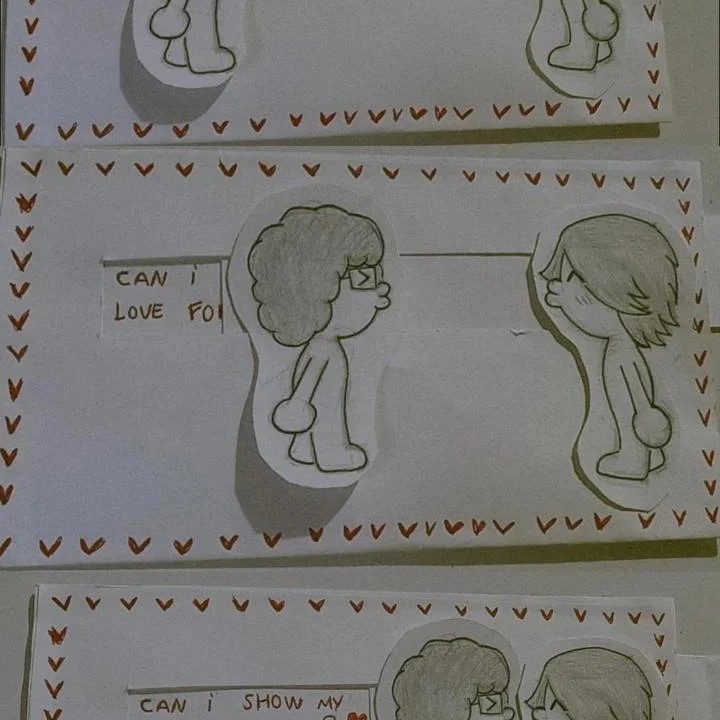 CAN i
LOVE FO
CAN i SHOW MY